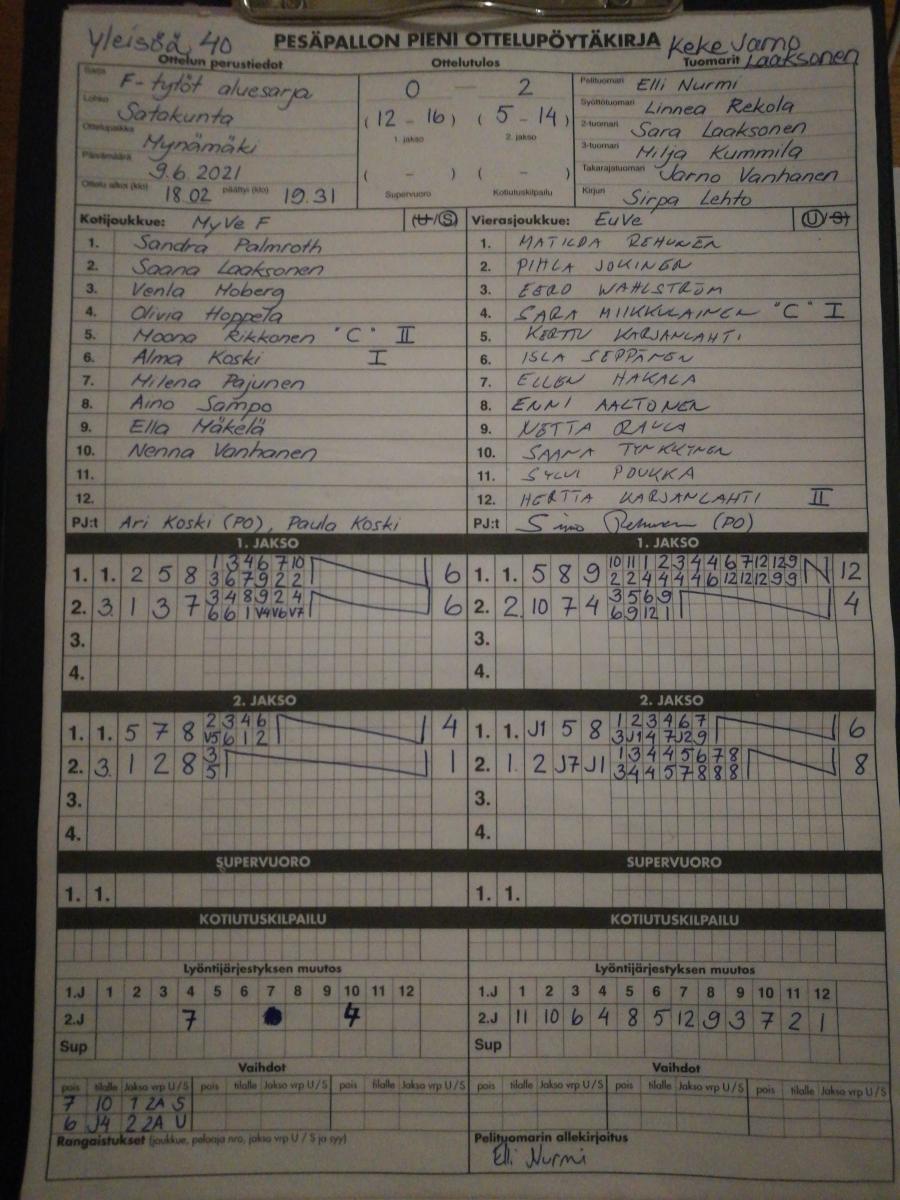 Yleisöä 40 PESÄPALLON PIENI OTTELUPÖYTÄKIRJA Keke Jarno Laaksonen
Ottelun perustiedot Ottelutulos Tuomarit
Sarja F-tytöt aluesarja 0 – 2 Pelituomari Elli Nurmi
Lohko Satakunta (12 - 16) (5 - 14) Syöttötuomari Linnea Rekola
1. jakso 2. jakso 2-tuomari Sara Laaksonen
Ottelupaikka Mynämäki 3-tuomari Milja Kummila
Päivämäärä 9.6.2021 ( - ) ( - ) Takarajatuomari Jarno Vanhanen
Ottelu alkoi (klo) 18.02 päättyi (klo) 19.31 Supervuoro Kotiutuskilpailu Kirjuri Sirpa Lehto
Kotijoukkue: MyVe F (U/S) Vierasjoukkue: EuVe (U/S)
1. Sandra Palmroth 1. MATILDA REHUNEN
2. Saana Laaksonen 2. PIHLA JOKINEN
3. Venla Moberg 3. EERO WAHLSTRÖM
4. Olivia Hoppela 4. SARA MIIKKULAINEN "C" I
5. Moona Rikkonen "C" II 5. KERTTU KARJANLAHTI
6. Alma Koski I 6. ISLA SEPPÄNEN
7. Milena Pajunen 7. ELLEN HAKALA
8. Aino Sampo 8. ENNI AALTONEN
9. Ella Mäkelä 9. NETTA
10. Nenna Vanhanen 10. SAANA TYNKKYNEN
11. 11. SYLVI POUKKA
12. 12. HERTTA KARJANLAHTI II
PJ:t Ari Koski (PO), Paula Koski PJ:t (PO)
1. JAKSO 1. JAKSO
1 3 4 6 7 10 10 11 1 2 3 4 4 6 7 12 12 9
1. 1. 2 5 8 6 1. 1. 5 8 9 12
3 6 7 9 2 2 2 2 4 4 4 4 6 12 12 12 9 9
3 4 8 9 2 4 3 5 6 9
2. 3. 1 3 7 6 2. 2. 10 7 4 4
6 6 1 V4 V6 V7 6 9 12 1
3. 3.
4. 4.
2. JAKSO 2. JAKSO
2 3 4 6 1 2 3 4 6 7
1. 1. 5 7 8 4 1. 1. J1 5 8 6
V5 6 1 2 3 J1 4 7 J2 9
3 1 3 4 4 5 6 7 8
2. 3. 1 2 8 1 2. 1. 2 J7 J1 8
5 3 4 4 5 7 8 8 8
3. 3.
4. 4.
SUPERVUORO SUPERVUORO
1. 1. 1. 1.
KOTIUTUSKILPAILU KOTIUTUSKILPAILU
Lyöntijärjestyksen muutos Lyöntijärjestyksen muutos
1.J 1 2 3 4 5 6 7 8 9 10 11 12 1.J 1 2 3 4 5 6 7 8 9 10 11 12
2.J 7 4 2.J 11 10 6 4 8 5 12 9 3 7 2 1
Sup Sup
Vaihdot Vaihdot
pois tilalle Jakso vrp U/S pois tilalle Jakso vrp U/S pois tilalle Jakso vrp U/S pois tilalle Jakso vrp U/S pois tilalle Jakso vrp U/S pois tilalle Jakso vrp U/S
7 10 1 2A S
6 J4 2 2A U
Rangaistukset (joukkue, pelaaja nro, jakso vrp U / S ja syy) Pelituomarin allekirjoitus
Elli Nurmi